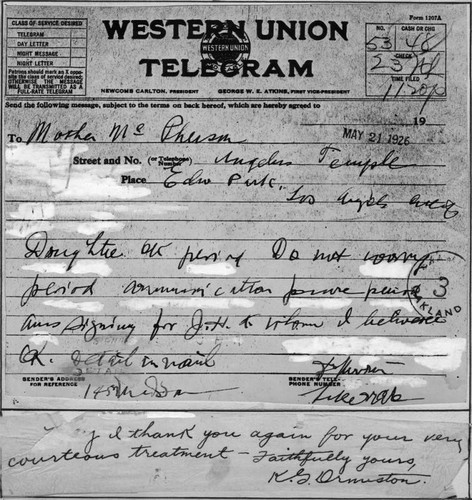 CLASS OF SERVICE DESIRED
TELEGRAM
DAY LETTER
NIGHT MESSAGE
NIGHT LETTER
Patrons should mark an X oppo-
site the class of service desired;
OTHERWISE THE MESSAGE
WILL BE TRANSMITTED AS A
FULL-RATE TELEGRAM
WESTERN UNION
WESTERN UNION
TELEGRAM
NEWCOMB CARLTON, PRESIDENT GEORGE W. E. ATKINS, FIRST VICE-PRESIDENT
Form 1207A
NO. CASH OR CHG
53 48
CHECK
23
TIME FILED
1120p
Send the following message, subject to the terms on back hereof, which are hereby agreed to
19
MAY 21 1926
To Mother Mc Pherson
Street and No. (or Telephone Number) Angelus Temple
Place Echo Park,
Los Angeles
Daughter OK period Do not worry
period communication
am signing for J.H. to whom I
OK. detail in mail
SENDER'S ADDRESS
FOR REFERENCE
SENDER'S TELE-
PHONE NUMBER
3
KLAND
I thank you again for your very
courteous treatment - Faithfully yours,
K.G. Ormiston.